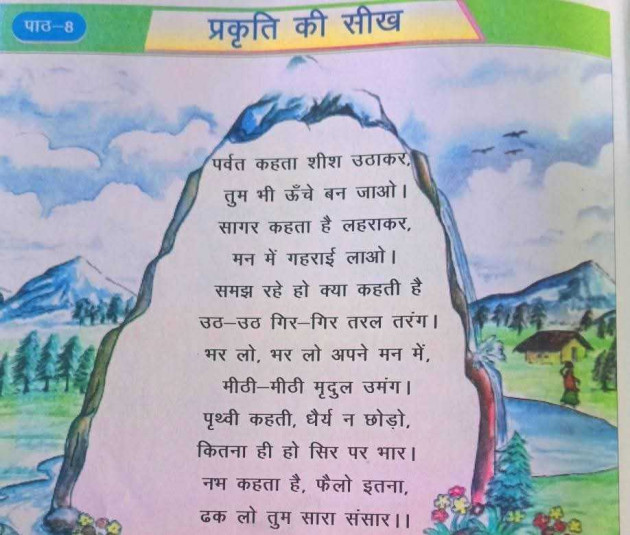 पाठ–8
प्रकृति की सीख
पर्वत कहता शीश उठाकर,
तुम भी ऊँचे बन जाओ।
सागर कहता है लहराकर,
मन में गहराई लाओ।
समझ रहे हो क्या कहती है
उठ–उठ गिर–गिर तरल तरंग।
भर लो, भर लो अपने मन में,
मीठी–मीठी मृदुल उमंग।
पृथ्वी कहती, धैर्य न छोड़ो,
कितना ही हो सिर पर भार।
नभ कहता है, फैलो इतना,
ढक लो तुम सारा संसार।।